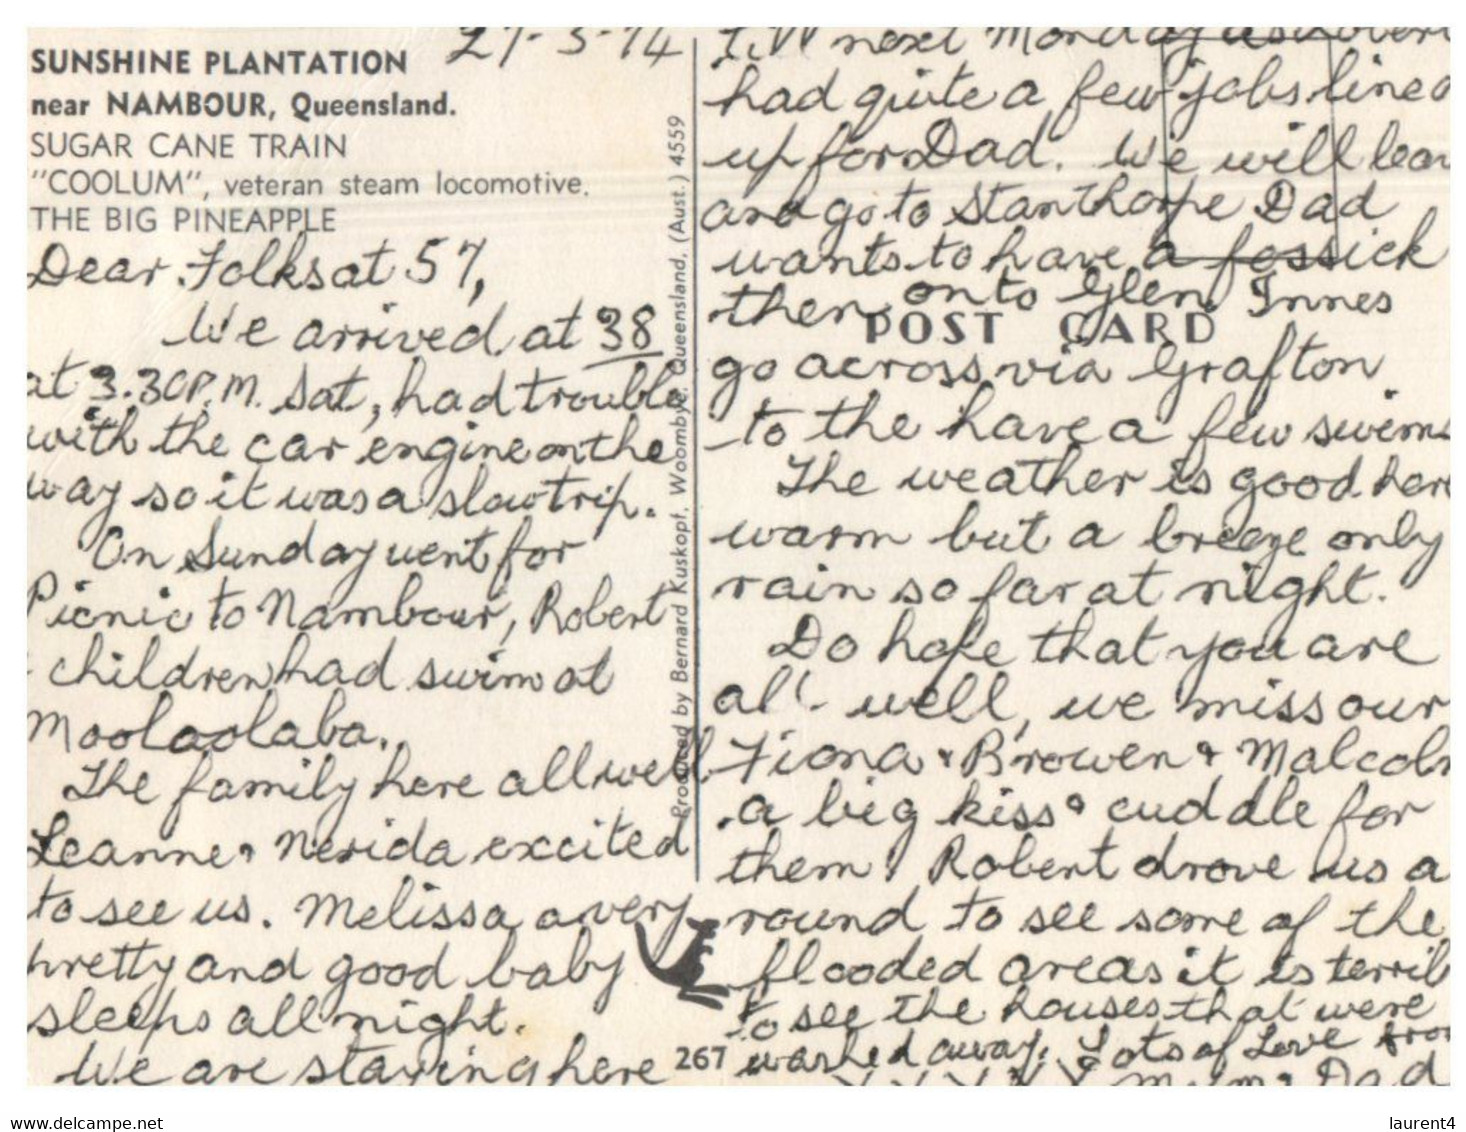 27-3-74
SUNSHINE PLANTATION
near NAMBOUR, Queensland.
SUGAR CANE TRAIN
"COOLUM", veteran steam locomotive.
THE BIG PINEAPPLE
Dear Folks at 57,
We arrived at 38
at 3.30P.M. Sat, had trouble
with the car engine on the
way so it was a slow trip.
On Sunday went for
Picnic to Nambour, Robert
& children had swim at
Mooloolaba.
The family here all well
Leanne & Nerida excited
to see us. Melissa a very
pretty and good baby
sleeps all night.
We are staying here
Produced by Bernard Kuskopf, Woombye, Queensland, (Aust.) 4559
267
Till next Monday as Robert
had quite a few jobs lined
up for Dad. We will leav
and go to Stanthorpe Dad
wants to have a fossick
then onto Glen Innes
POST CARD
go across via Grafton
to the have a few swims
The weather is good here
warm but a breeze only
rain so far at night.
Do hope that you are
all well, we miss our
Fiona & Browen & Malcolm
a big kiss & cuddle for
them! Robert drove us a
round to see some of the
flooded areas it is terrib
to see the houses that were
washed away. Lots of Love from
XXXXX Mum & Dad
www.delcampe.net
laurent4